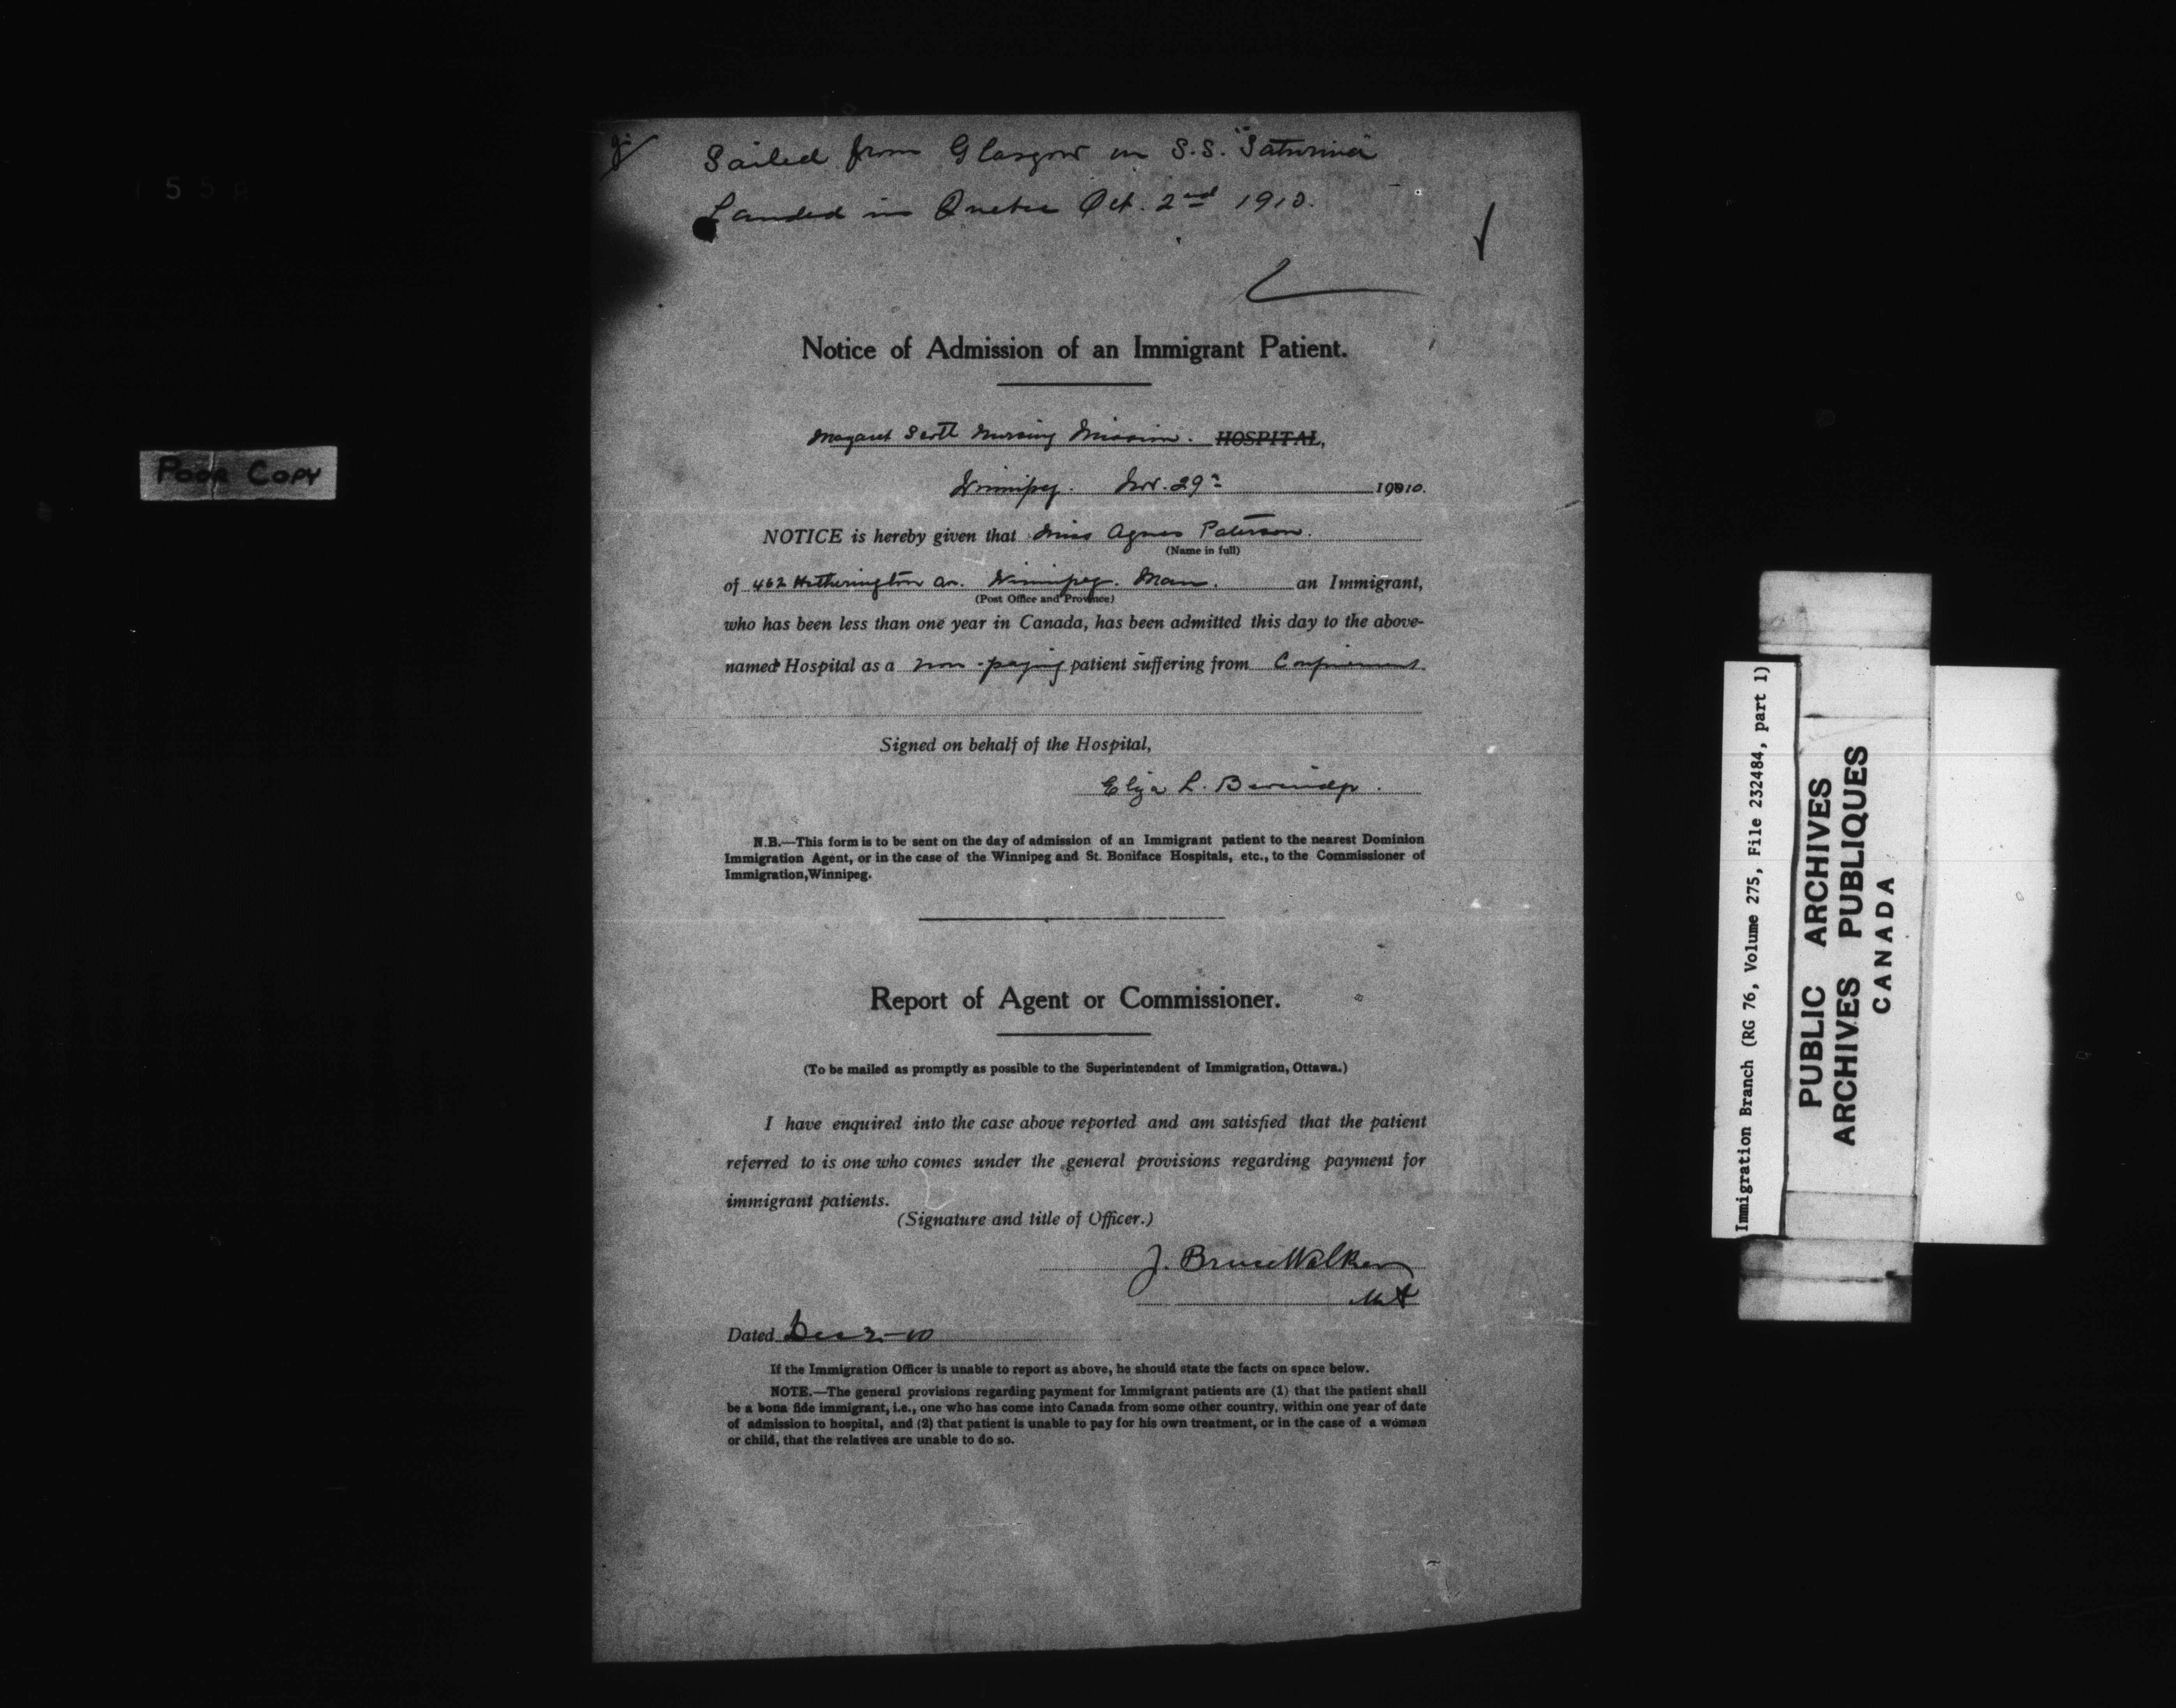 Sailed from Glasgow in S.S. "Saturnia"
Landed in Quebec Oct. 2nd 1910.
Notice of Admission of an Immigrant Patient.
Margaret Scott Nursing Mission. HOSPITAL,
Winnipeg. Nov. 29th 1910.
NOTICE is hereby given that Miss Agnes Paterson.
(Name in full)
of 462 Hetherington Av. Winnipeg. Man. an Immigrant,
(Post Office and Province)
who has been less than one year in Canada, has been admitted this day to the above-
named Hospital as a non-paying patient suffering from Confinement
Signed on behalf of the Hospital,
Eliza L.
N.B.—This form is to be sent on the day of admission of an Immigrant patient to the nearest Dominion
Immigration Agent, or in the case of the Winnipeg and St. Boniface Hospitals, etc., to the Commissioner of
Immigration, Winnipeg.
Report of Agent or Commissioner.
(To be mailed as promptly as possible to the Superintendent of Immigration, Ottawa.)
I have enquired into the case above reported and am satisfied that the patient
referred to is one who comes under the general provisions regarding payment for
immigrant patients.
(Signature and title of Officer.)
J. Bruce Walker
Dated Dec 2-10
If the Immigration Officer is unable to report as above, he should state the facts on space below.
NOTE.—The general provisions regarding payment for Immigrant patients are (1) that the patient shall
be a bona fide immigrant, i.e., one who has come into Canada from some other country, within one year of date
of admission to hospital, and (2) that patient is unable to pay for his own treatment, or in the case of a woman
or child, that the relatives are unable to do so.
POOR COPY
Immigration Branch (RG 76, Volume 275, File 232484, part 1)
PUBLIC ARCHIVES
ARCHIVES PUBLIQUES
CANADA